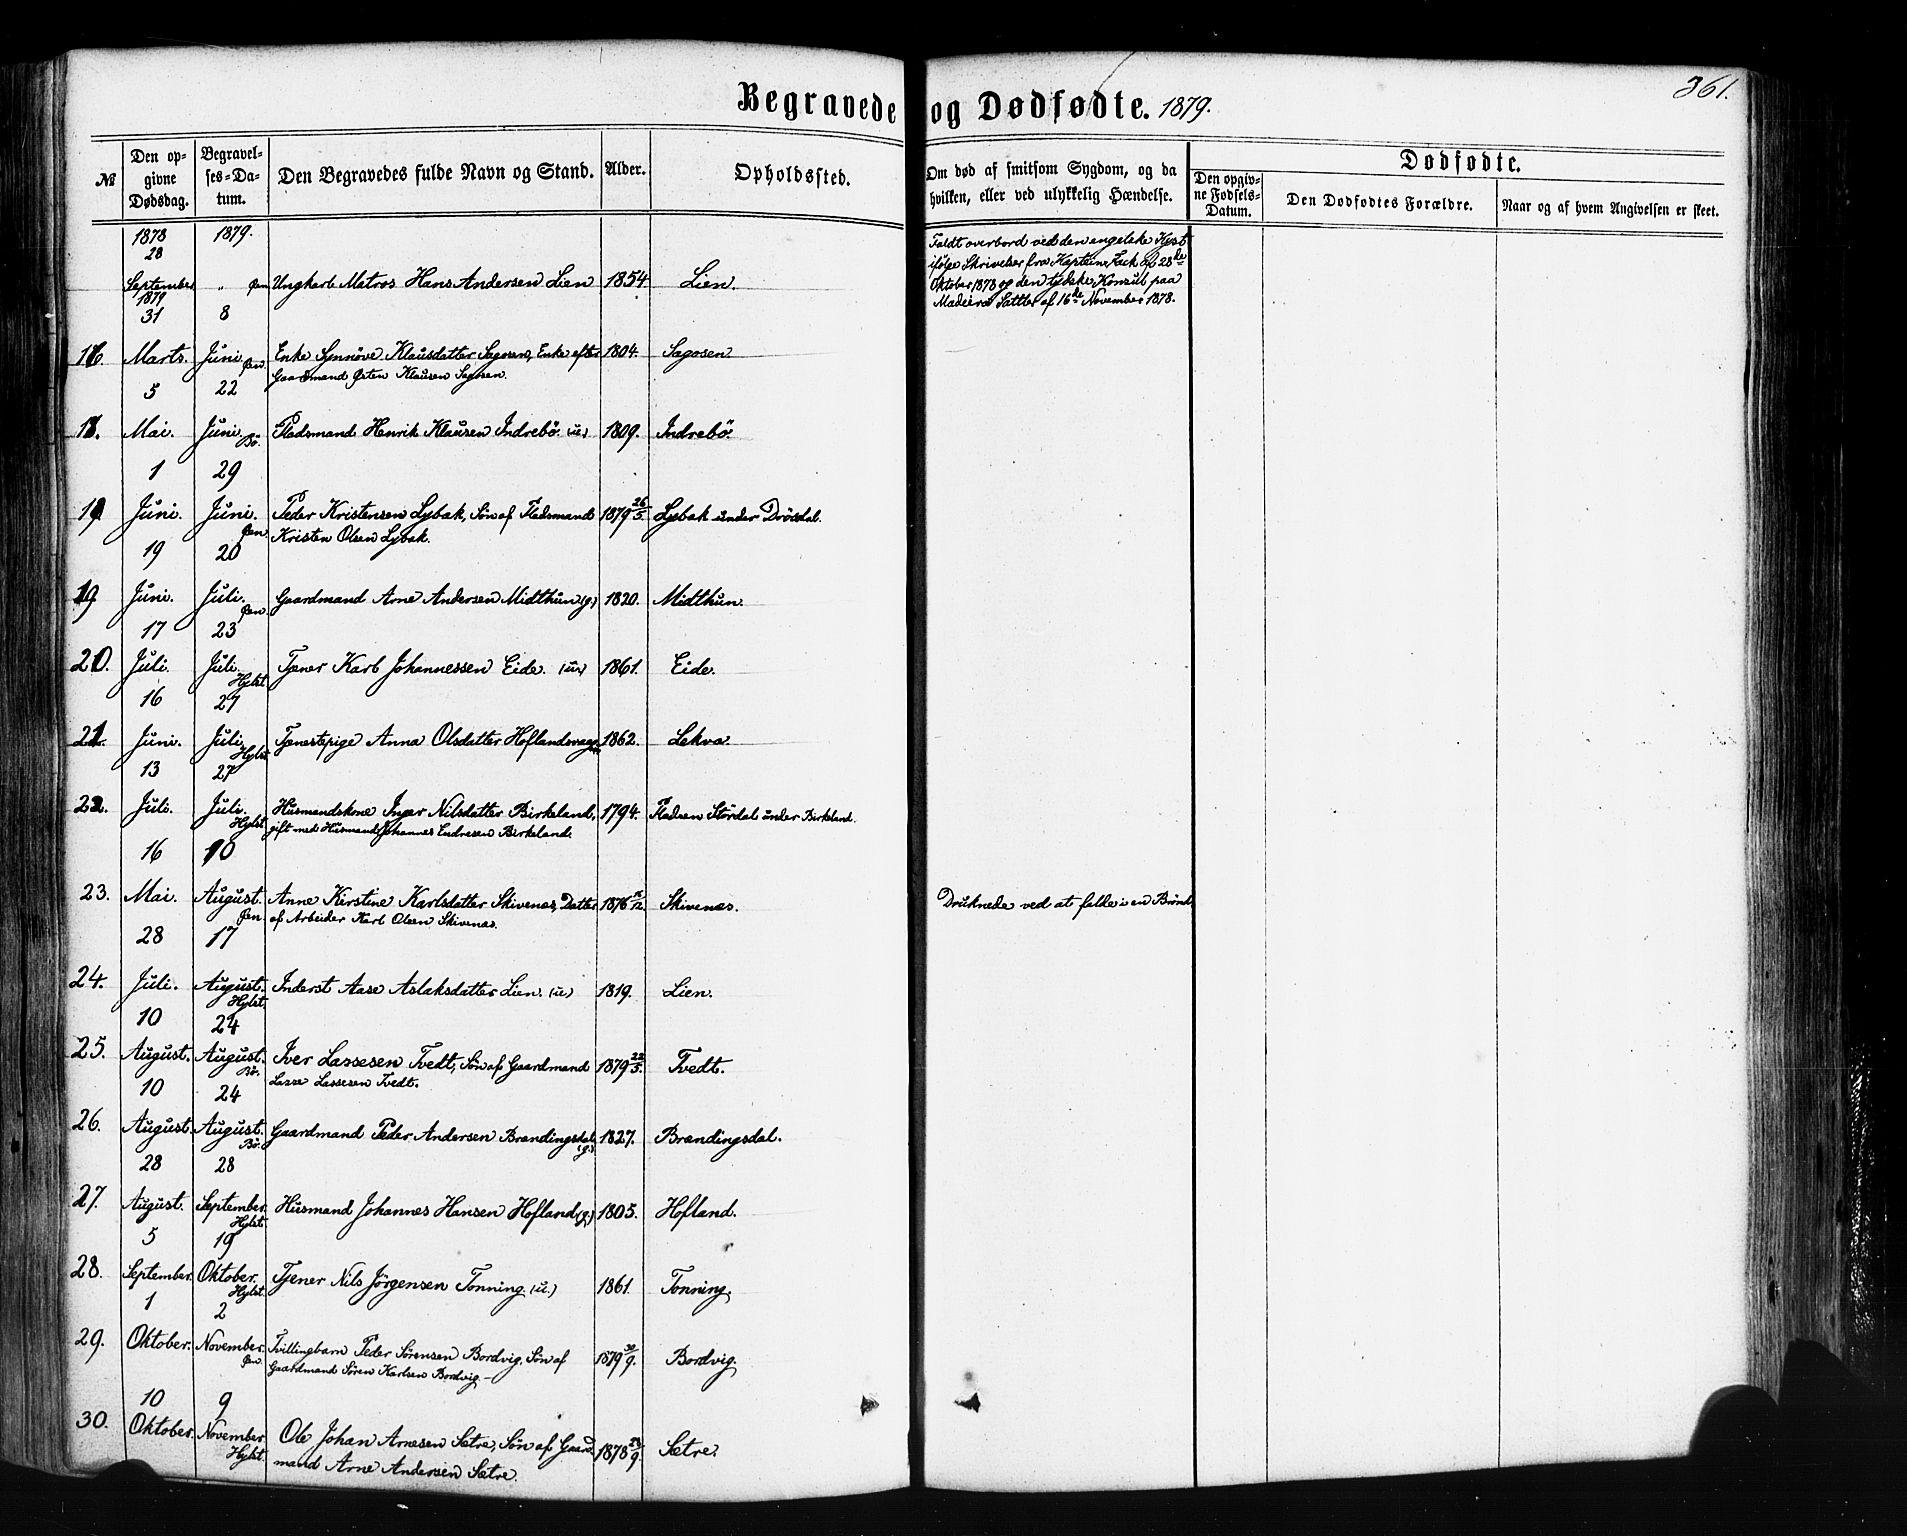 361.
Begravede og Dødfødte. 1879.
№
Den opgivne Dødsdag.
Begravelses-Datum.
Den Begravedes fulde Navn og Stand.
Alder.
Opholdssted.
Om død af smitsom Sygdom, og da hvilken, eller ved ulykkelig Hændelse.
Dødfødte.
Den opgivne Fødsels-Datum.
Den Dødfødtes Forældre.
Naar og af hvem Angivelsen er skeet.
1878 1879.
28
September " Øen Ungkarl Matros Hans Andersen Lien 1854 Lien.
Faldt overbord ved den engelske Kyst
ifølge Skrivelser fra Kaptein Fack af 28de
Oktober 1878 og den tydske Konsul paa
Madeira Sattler af 16de November 1878.
1879
31 8
16 Marts. Juni. Øen. Enke Synnöve Klausdatter Sagosen, Enke efter 1804. Sagosen
Gaardmand Østen Klausen Sagosen.
5 22
18. Mai. Juni. Bö. Pladsmand Henrik Klausen Indrebö. (u) 1809. Indrebö.
1 29
19 Juni. Juni. Øen. Peder Kristensen Lybak, Sön af Pladsmand 1879 26/5. Lybak under Drösdal.
Kristen Olsen Lybak.
19 20
19 Juni. Juli. Øen. Gaardmand Arne Andersen Midthun (g.) 1820. Midthun.
17 23
20. Juli. Juli. Hylst. Tjener Karl Johannessen Eide. (u) 1861. Eide.
16 27
21. Juni. Juli. Hylst. Tjenestepige Anna Olsdatter Hoflandsvaag 1862. Lekva.
13 27
22. Juli. Juli. Hylst. Husmandskone Inger Nilsdatter Birkeland, 1794. Pladsen Stördal under Birkeland.
gift med Husmand Johannes Endresen Birkeland.
16 10
23. Mai. August. Øen Anne Kirstine Karlsdatter Skivenes, Datter 1876 /12. Skivenes. Druknede ved at falde i en Brönd.
af Arbeider Karl Olsen Skivenes.
28 17
24. Juli. August. Hylst. Inderst Aase Aslaksdatter Lien. (u) 1819. Lien.
10 24
25. August. August. Bö. Iver Lassesen Tvedt, Sön af Gaardmand 1879 22/5. Tvedt.
Lasse Lassesen Tvedt.
10 24
26. August. August. Bö. Gaardmand Peder Andersen Brandingsdal (g.) 1827. Brandingsdal.
28 28
27. August. September. Hylst. Husmand Johannes Hansen Hofland (g.) 1805. Hofland.
5 19
28. September. Oktober. Hylst. Tjener Nils Jörgensen Tonning (u.) 1861. Tonning.
1 2
29. Oktober. November. Øen. Tvillingbarn Peder Sörensen Bordvig, Sön af 1879 30/9. Bordvig.
Gaardmand Sören Karlsen Bordvig.
10 9
30. Oktober. November. Hylst. Ole Johan Arnesen Sætre, Sön af Gaard- 1878 /9. Sætre.
mand Arne Andersen Sætre.